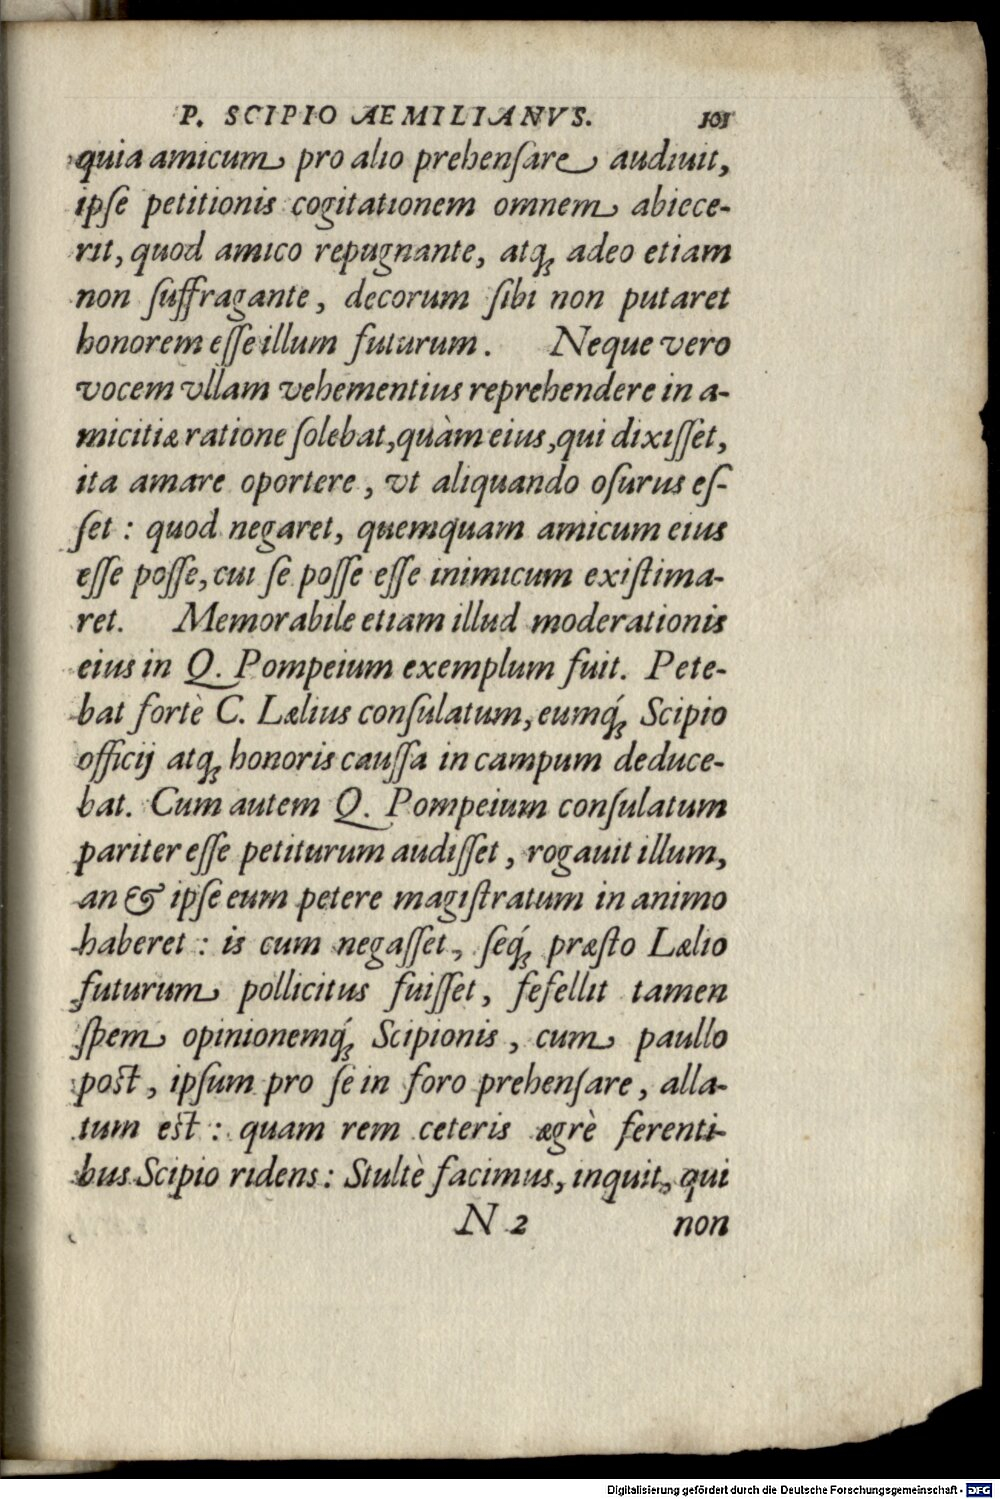 P. SCIPIO AEMILIANVS. 101
quia amicum pro alio prehenſare audiuit,
ipſe petitionis cogitationem omnem abiece-
rit, quod amico repugnante, atq; adeo etiam
non ſuffragante, decorum ſibi non putaret
honorem eſſe illum futurum. Neque vero
vocem vllam vehementius reprehendere in a-
micitiæ ratione ſolebat, quàm eius, qui dixiſſet,
ita amare oportere, vt aliquando oſurus eſ-
ſet: quod negaret, quemquam amicum eius
eſſe poſſe, cui ſe poſſe eſſe inimicum exiſtima-
ret. Memorabile etiam illud moderationis
eius in Q. Pompeium exemplum fuit. Pete-
bat fortè C. Lælius conſulatum, eumq́; Scipio
officij atq; honoris cauſſa in campum deduce-
bat. Cum autem Q. Pompeium conſulatum
pariter eſſe petiturum audiſſet, rogauit illum,
an & ipſe eum petere magiſtratum in animo
haberet: is cum negaſſet, ſeq́; præſto Lælio
futurum pollicitus fuiſſet, fefellit tamen
ſpem opinionemq́; Scipionis, cum paullo
poſt, ipſum pro ſe in foro prehenſare, alla-
tum eſt: quam rem ceteris ægrè ferenti-
bus Scipio ridens: Stultè facimus, inquit, qui
N 2 non
Digitalisierung gefördert durch die Deutsche Forschungsgemeinschaft - DFG